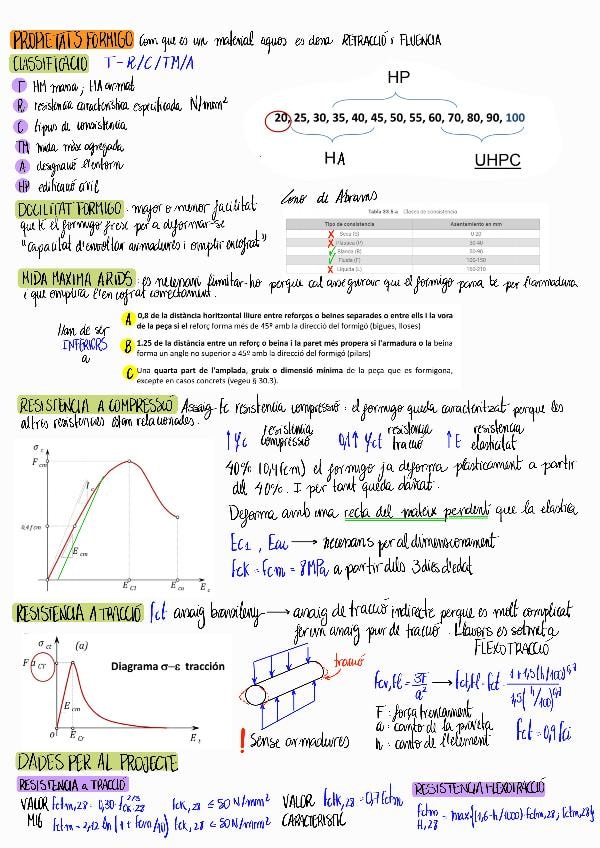 PROPIETATS FORMIGÓ Com que es un material aquos es dona RETRACCIÓ i FLUENCIA
CLASSIFICACIÓ T-R/C/TM/A
T HM massa; HA armat
R resistencia característica especificada N/mm²
C tipus de consistencia
TM mida màx agregada
A designació l'entorn
HP edificació civil
HP
20, 25, 30, 35, 40, 45, 50, 55, 60, 70, 80, 90, 100
HA UHPC
DOCILITAT FORMIGÓ: major o menor facilitat
que té el formigo fresc per a deformar-se
"Capacitat d'envoltar armadures i omplir encofrat"
Cono de Abrams
Tabla 33.5.a Clases de consistencia
Tipo de consistencia Asentamiento en mm
Seca (S) 0-20
Plástica (P) 30-40
Blanda (B) 50-90
Fluida (F) 100-150
Líquida (L) 160-210
MIDA MAXIMA ARIDS: es necesari limitar-ho perque cal assegurar que el formigo passa be per l'armadura
i que omplira l'encofrat correctament.
Han de ser
INFERIORS
a
A 0,8 de la distància horitzontal lliure entre reforços o beines separades o entre ells i la vora
de la peça si el reforç forma més de 45º amb la direcció del formigó (bigues, lloses)
B 1.25 de la distància entre un reforç o beina i la paret més propera si l'armadura o la beina
forma un angle no superior a 45º amb la direcció del formigó (pilars)
C Una quarta part de l'amplada, gruix o dimensió mínima de la peça que es formigona,
excepte en casos concrets (vegeu § 30.3).
RESISTENCIA A COMPRESSIÓ Assaig-fc resistencia compressió: el formigo queda caracteritzat perque les
altres resistencies estan relacionades.
↑ fc resistencia compressió 0,1↑ fct resistencia tracció ↑E resistencia elasticitat
40% (0,4 fcm) el formigo ja deforma plasticament a partir
del 40%. I per tant queda dañat.
Deforma amb una recta del mateix pendent que la elastica
Ec1, Ecu → necessaris per al dimensionament
fck = fcm = 8MPa a partir dels 3 dies d'edat
σ c
F cm
0,4 f cm
E c
E cm
E C1 E cu E c
RESISTENCIA A TRACCIÓ fct assaig brasileny → assaig de tracció indirecte perque es molt complicat
fer un assaig pur de tracció. Llavors es sotmeta
FLEXOTRACCIÓ
σ ct (a)
F CT
E cm
0 E Cr E t
Diagrama σ–ε tracción
tracció
! Sense armadures
F: força trencament
a: canto de la proveta
h: canto de l'element
fct = 0,9 fci
DADES PER AL PROJECTE
RESISTENCIA a TRACCIÓ
VALOR MIG
fctm,28 = 0,30·fck,28^2/3 fck,28 ≤ 50 N/mm²
VALOR CARACTERISTIC fctk,28 = 0,7 fctm
RESISTENCIA FLEXOTRACCIÓ